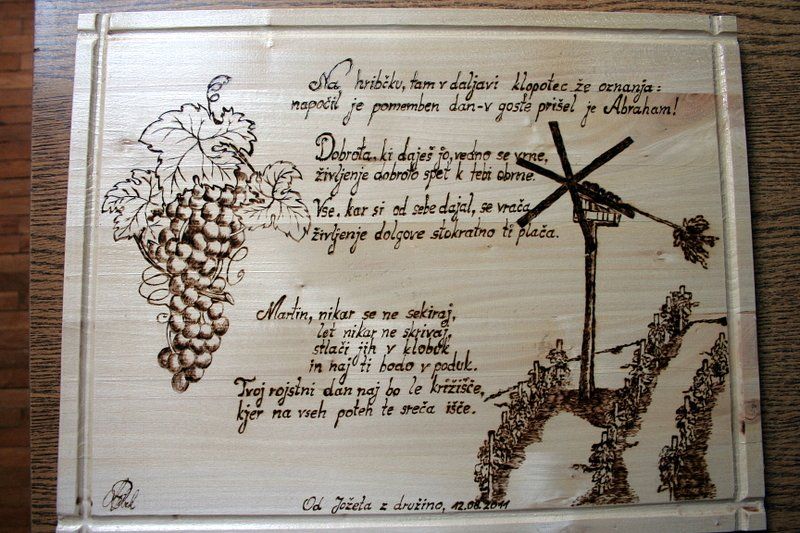 Na hribčku, tam v daljavi klopotec že oznanja:
napočil je pomemben dan-v goste prišel je Abraham!
Dobrota, ki daješ jo, vedno se vrne,
življenje dobroto spet k tebi obrne.
Vse, kar si od sebe dajal, se vrača,
življenje dolgove stokratno ti plača.
Martin, nikar se ne sekiraj,
let nikar ne skrivaj,
stlači jih v klobuk
in naj ti bodo v poduk.
Tvoj rojstni dan naj bo le križišče,
kjer na vseh poteh te sreča išče.
Od Jožeta z družino, 12.08.2011